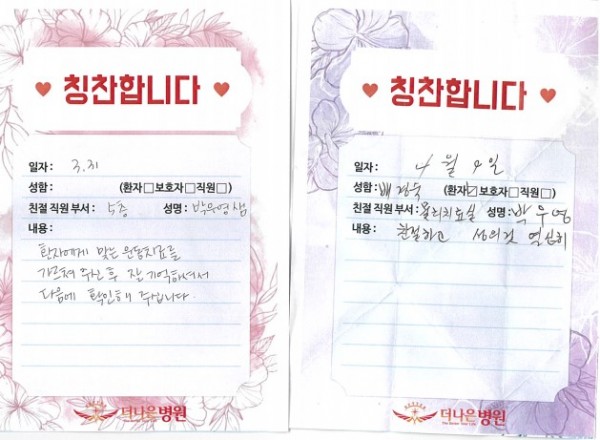 칭찬합니다
일자 : 3.31
성함 : (환자□ 보호자□ 직원□)
친절 직원 부서 : 5층 성명 : 박우영샘
내용 :
환자에게 맞는 운동치료를
가르쳐 주신 후 잘 기억하셔서
다음에 확인해 주십니다.
더나은병원
칭찬합니다
일자 : 4월 4일
성함 : 배정숙 (환자☑ 보호자□ 직원□)
친절 직원 부서 : 물리치료실 성명 : 박우영
내용 : 친절하고 성의껏 열심히
더나은병원